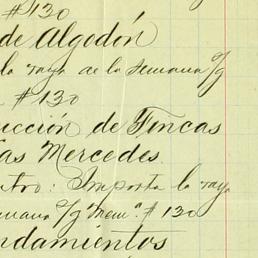 #130
de Algodón
la raya de la semana s/g
#130
ucción de Fincas
Las Mercedes.
ntro: Importa la raya
emana s/g Mem.ᵃ # 130
ndamientos